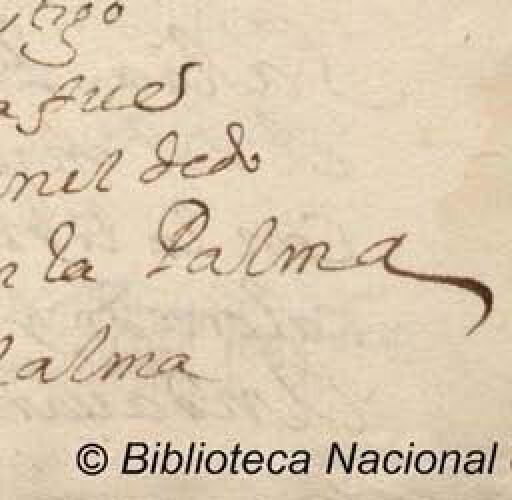 tigo
a fues
nel dedo
n la Palma
alma
© Biblioteca Nacional